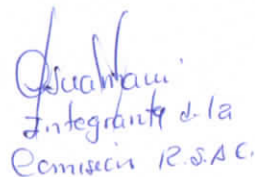 Integrante de la
Comisión R.S.A.C.